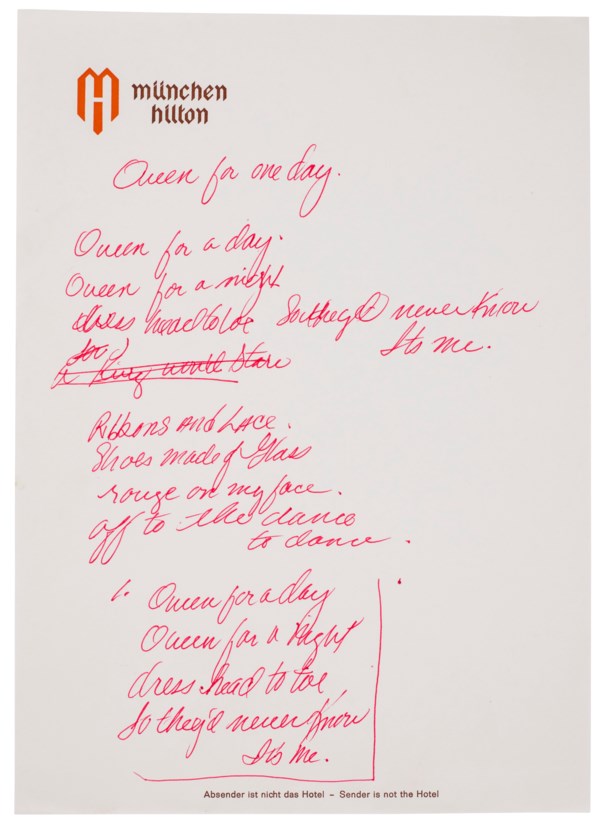 münchen
hilton
Queen for one day.
Queen for a day.
Queen for a night
dress head to toe So they'd never Know
Its me.
King would Stare
Ribbons And Lace.
Shoes made of Glass
rouge on my face.
off to the dance
to dance.
1. Queen for a day
Queen for a Night
dress head to toe
So they'd never Know
Its me.
Absender ist nicht das Hotel – Sender is not the Hotel